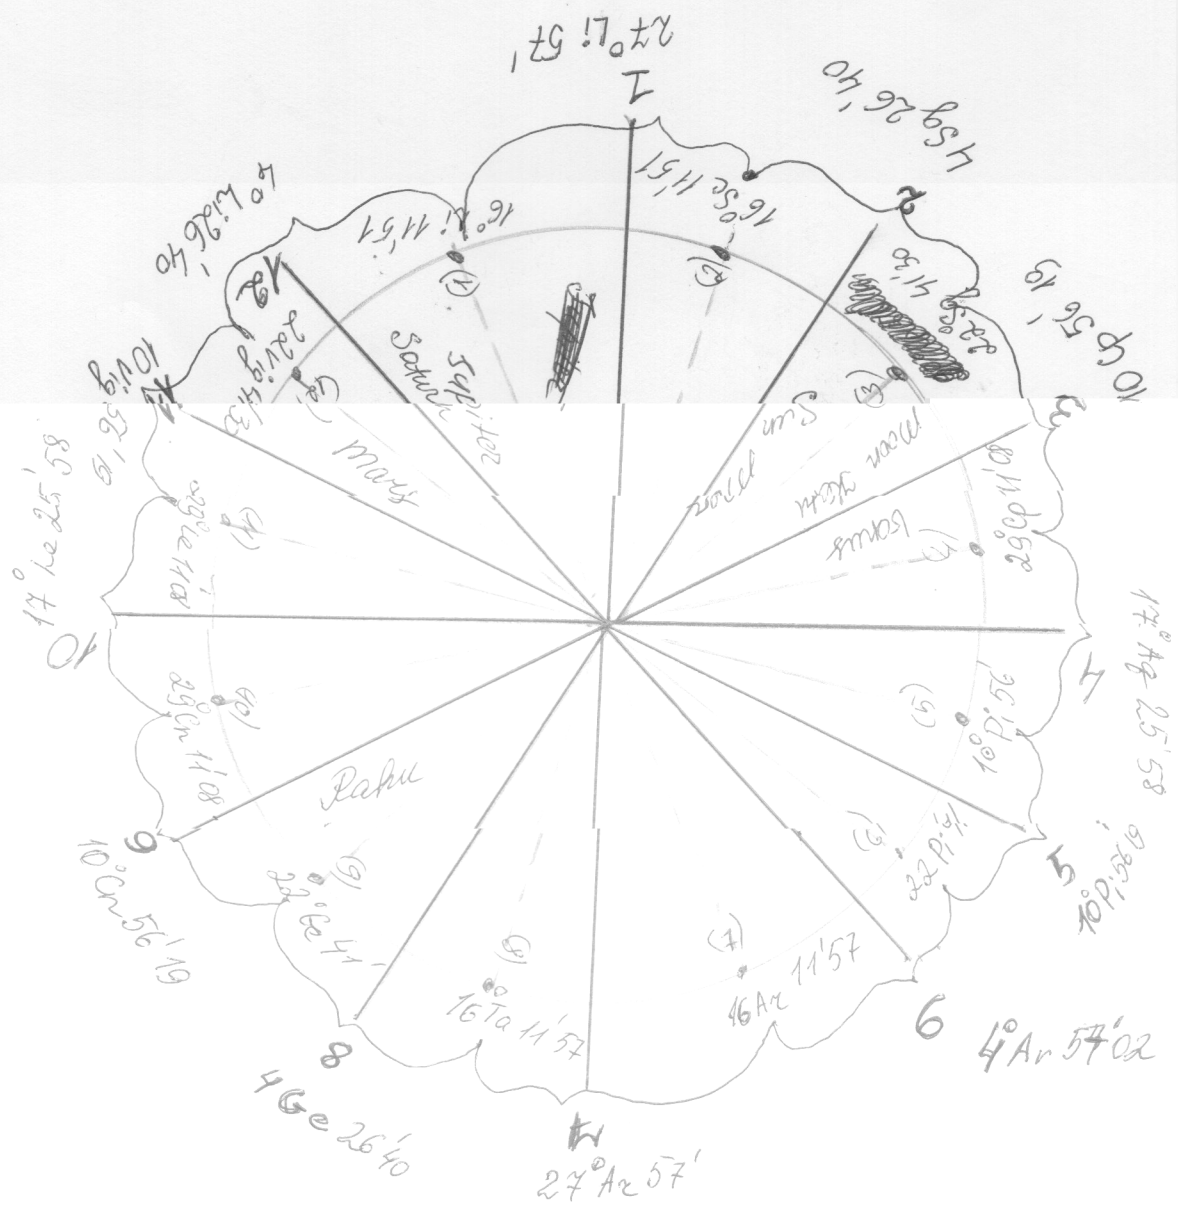 27° Li 57'
1
4 Sg 26'40
2
10 Cp 56'19
3
17° Aq 25'58
4
5
10° Pi 56'19
6
4° Ar 57'02
27° Ar 57'
8
4 Ge 26'40
9
10° Cn 56'19
10
17° Le 25'58
10 Vig 56'19
12
4° Li 26'40
16° Li 11'51
(1)
16° Sc 11'51
(2)
22° Sg 41'30
(3)
29° Cp 11'08
10° Pi 56'
(5)
22 Pi
16 Ar 11'57
(7)
16° Ta 11'57
(8)
22° Ge 41'
(9)
29° Cn 11'08
(10)
29° Le 11'08
(11)
22 Vig 41'30
(12)
Saturn
Jupiter
Mars
Sun
moon
Ketu
Rahu